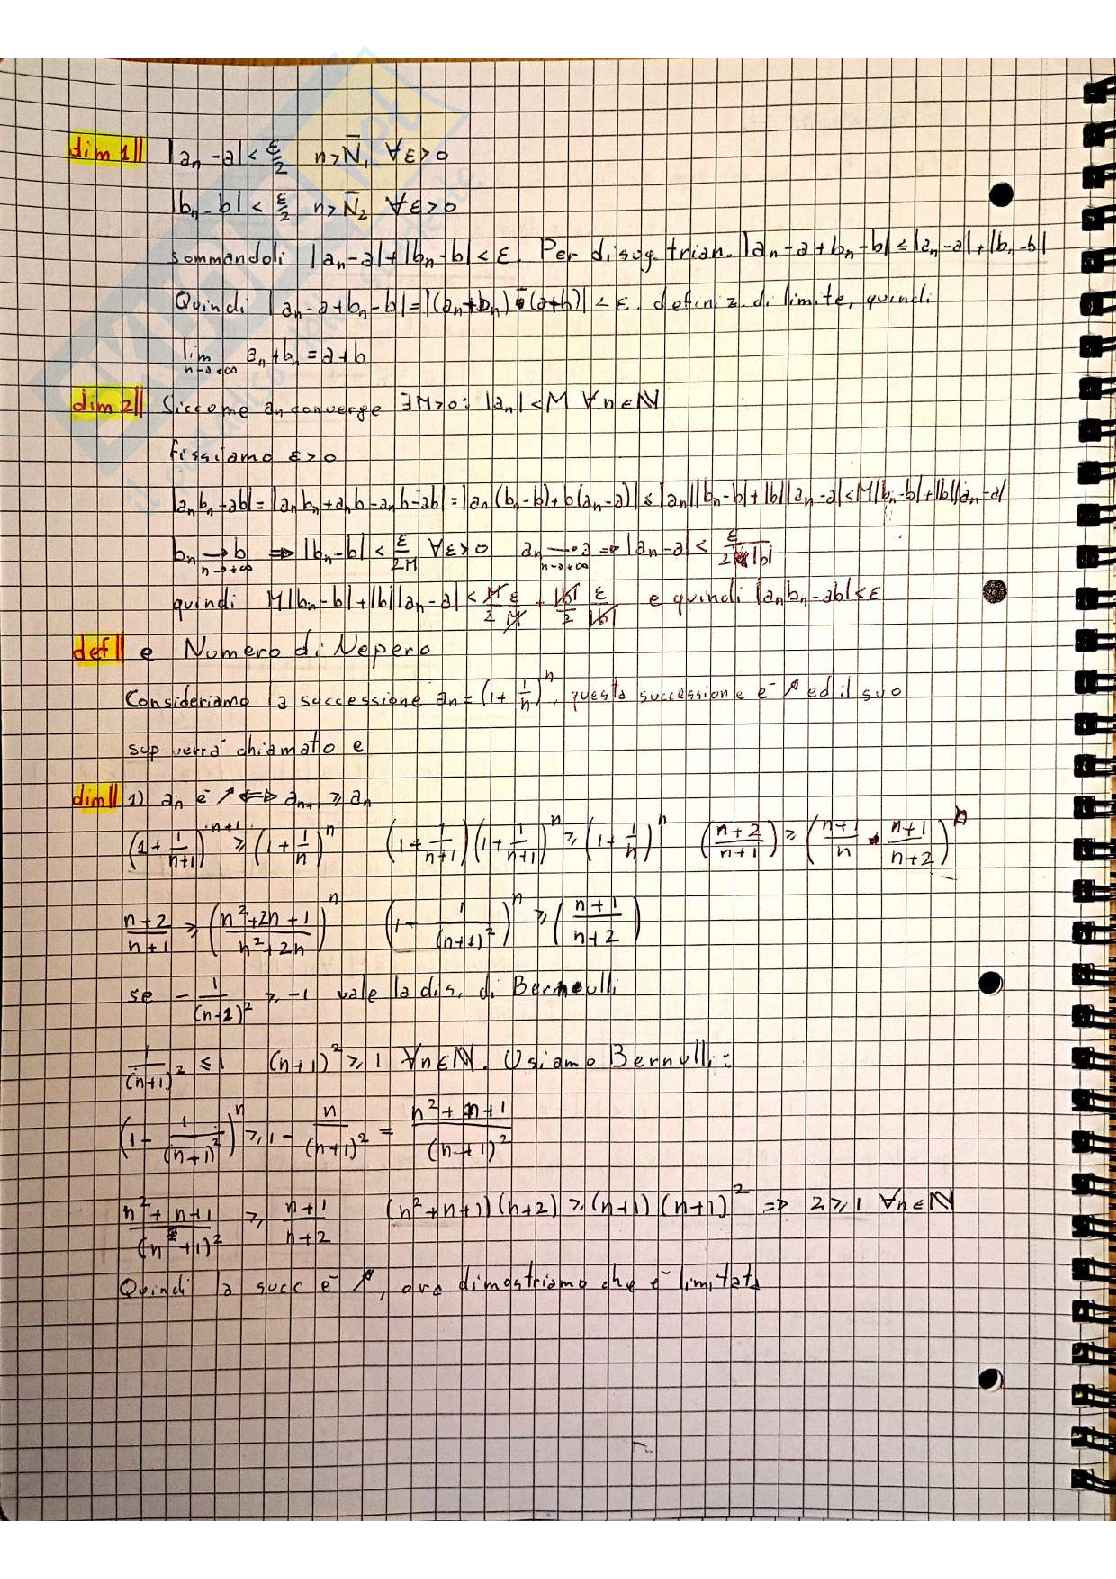 dim 1|| |aₙ - a| < ε/2 n > N̄₁ ∀ε>0
|bₙ - b| < ε/2 n > N̄₂ ∀ε>0
sommandoli |aₙ - a| + |bₙ - b| < ε. Per disug. trian. |aₙ - a + bₙ - b| ≤ |aₙ - a| + |bₙ - b|
Quindi |aₙ - a + bₙ - b| = |(aₙ + bₙ) - (a+b)| < ε. definiz. di limite, quindi
lim n→+∞ aₙ + bₙ = a + b
dim 2|| Siccome aₙ converge ∃M>0: |aₙ| < M ∀n∈ℕ
fissiamo ε>0
|aₙbₙ - ab| = |aₙbₙ + aₙb - aₙb - ab| = |aₙ(bₙ - b) + b(aₙ - a)| ≤ |aₙ||bₙ - b| + |b||aₙ - a| < M|bₙ - b| + |b||aₙ - a|
bₙ → b n→+∞ ⇒ |bₙ - b| < ε/2M ∀ε>0 aₙ → a n→+∞ ⇒ |aₙ - a| < ε/2|b|
quindi M|bₙ - b| + |b||aₙ - a| < M/2 ε/M + |b|/2 ε/|b| e quindi |aₙbₙ - ab| < ε
def|| e Numero di Nepero
Consideriamo la successione aₙ = (1 + 1/n)ⁿ, questa successione è ↗ ed il suo
sup verrà chiamato e
dim|| 1) aₙ è ↗ ⇔ aₙ₊₁ ≥ aₙ
(1 + 1/(n+1))ⁿ⁺¹ ≥ (1 + 1/n)ⁿ (1 + 1/(n+1))(1 + 1/(n+1))ⁿ ≥ (1 + 1/n)ⁿ ((n+2)/(n+1)) ≥ ((n+1)/n · (n+1)/(n+2))ⁿ
(n+2)/(n+1) ≥ ((n²+2n+1)/(n²+2n))ⁿ (1 - 1/(n+1)²)ⁿ ≥ ((n+1)/(n+2))
se - 1/(n+1)² ≥ -1 vale la dis. di Bernoulli
1/(n+1)² ≤ 1 (n+1)² ≥ 1 ∀n∈ℕ. Usiamo Bernulli:
(1 - 1/(n+1)²)ⁿ ≥ 1 - n/(n+1)² = (n² + n+1)/(n+1)²
(n² + n+1)/(n+1)² ≥ (n+1)/(n+2) (n²+n+1)(n+2) ≥ (n+1)(n+1)² ⇒ 2 ≥ 1 ∀n∈ℕ
Quindi la succ è ↗, ora dimostriamo che è limitata